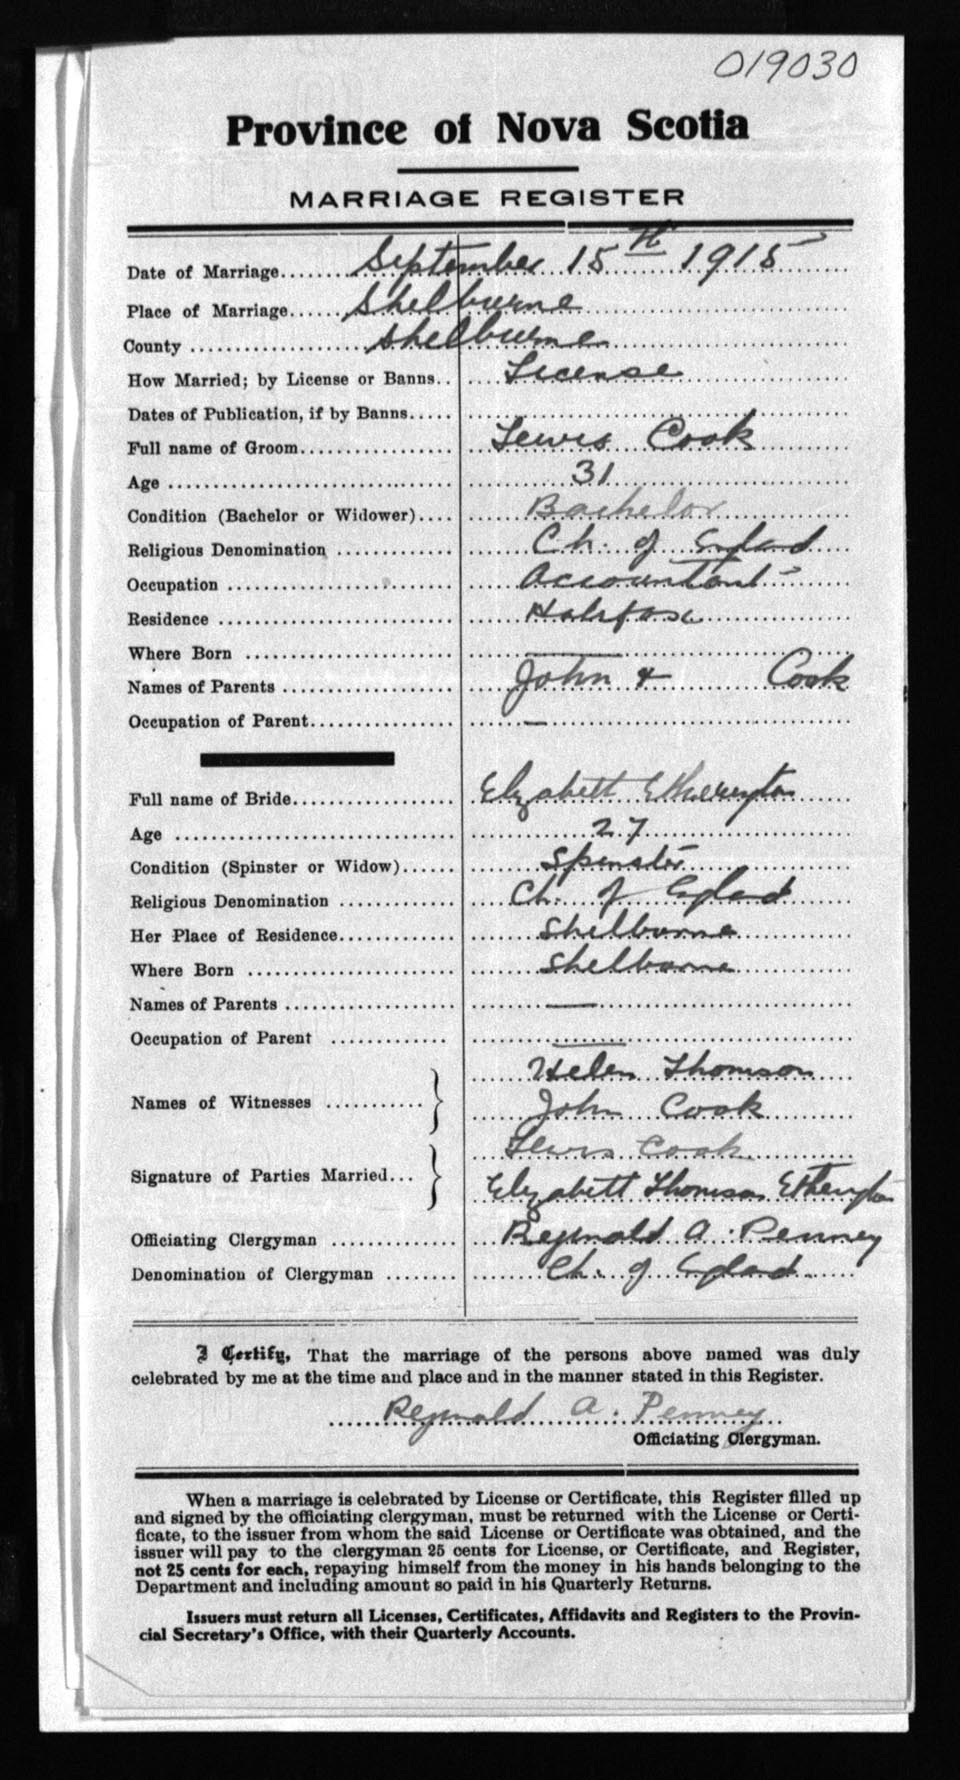 019030
Province of Nova Scotia
MARRIAGE REGISTER
Date of Marriage........ September 15th 1915
Place of Marriage...... Shelburne
County .................... Shelburne
How Married; by License or Banns.. License
Dates of Publication, if by Banns.....
Full name of Groom................. Lewis Cook
Age ................................ 31
Condition (Bachelor or Widower).... Bachelor
Religious Denomination ............ Ch. of England
Occupation ......................... Accountant
Residence .......................... Halifax
Where Born ........................ —
Names of Parents .................. John & Cook
Occupation of Parent............... —
Full name of Bride.................. Elizabeth Etherington
Age ................................ 27
Condition (Spinster or Widow)...... Spinster
Religious Denomination ............ Ch. of England
Her Place of Residence............. Shelburne
Where Born ........................ Shelburne
Names of Parents .................. —
Occupation of Parent ............. —
Helen Thomson
Names of Witnesses ........... } John Cook
Lewis Cook
Signature of Parties Married... } Elizabeth Thomson Etherington
Officiating Clergyman ............. Reginald A. Penney
Denomination of Clergyman ........ Ch. of England
I Certify, That the marriage of the persons above named was duly
celebrated by me at the time and place and in the manner stated in this Register.
Reginald A. Penney
Officiating Clergyman.
When a marriage is celebrated by License or Certificate, this Register filled up
and signed by the officiating clergyman, must be returned with the License or Certi-
ficate, to the issuer from whom the said License or Certificate was obtained, and the
issuer will pay to the clergyman 25 cents for License, or Certificate, and Register,
not 25 cents for each, repaying himself from the money in his hands belonging to the
Department and including amount so paid in his Quarterly Returns.
Issuers must return all Licenses, Certificates, Affidavits and Registers to the Provin-
cial Secretary's Office, with their Quarterly Accounts.